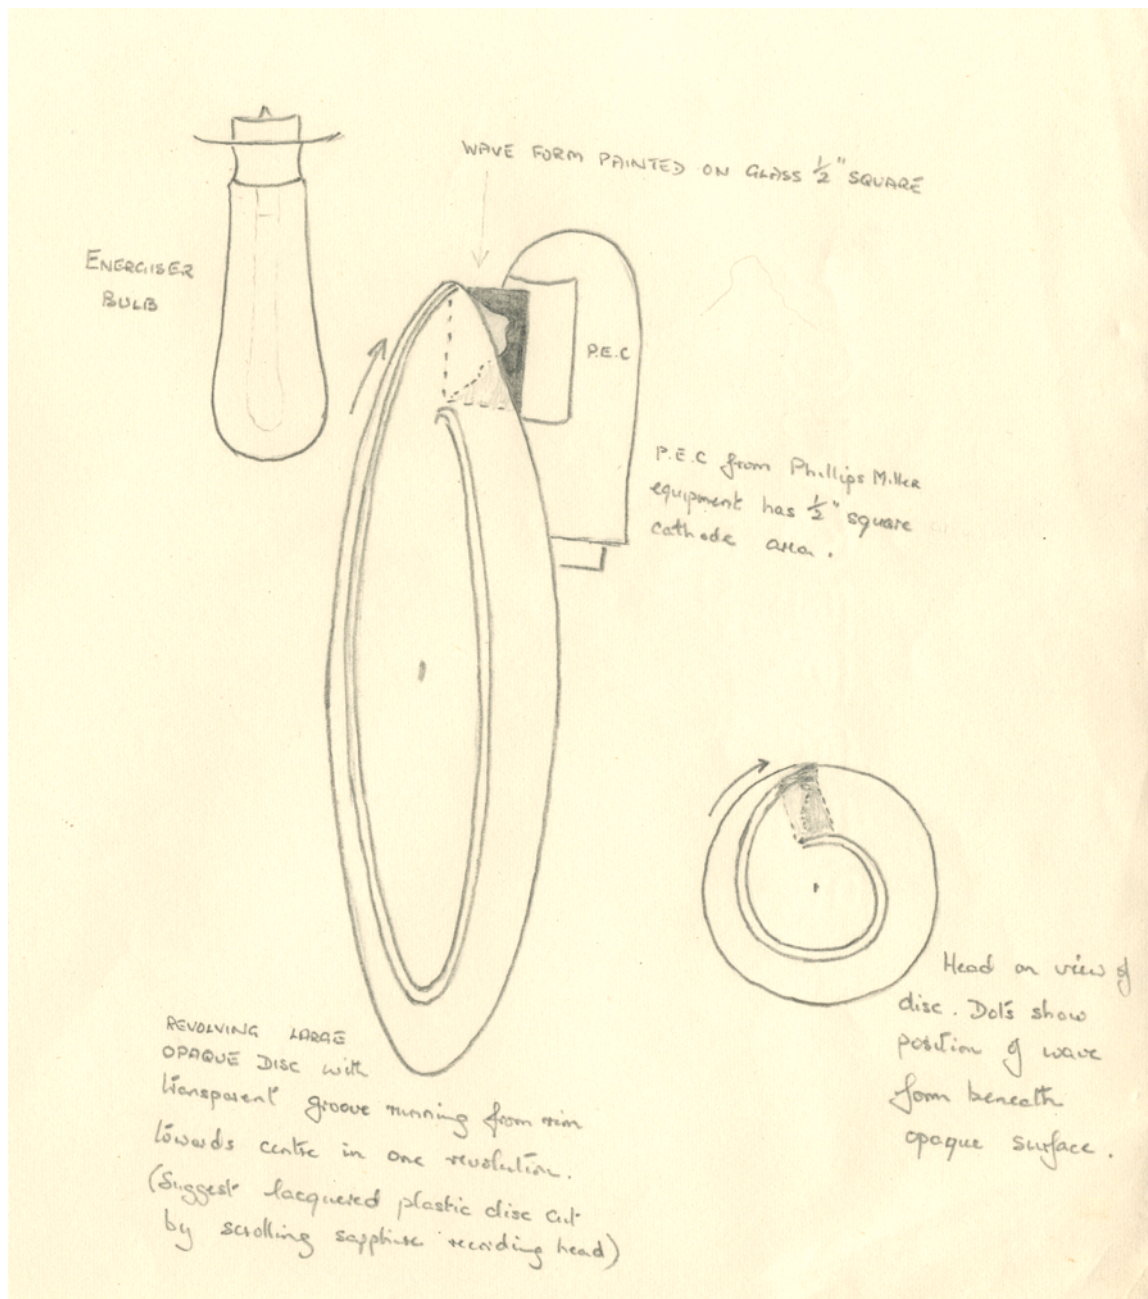 WAVE FORM PAINTED ON GLASS ½" SQUARE
ENERGISER
BULB
P.E.C
P.E.C from Phillips Miller
equipment has ½" square
cathode area.
REVOLVING LARGE
OPAQUE DISC with
transparent groove running from rim
towards centre in one revolution.
(Suggest lacquered plastic disc cut
by scrolling sapphire recording head)
Head on view of
disc. Dots show
position of wave
form beneath
opaque surface.